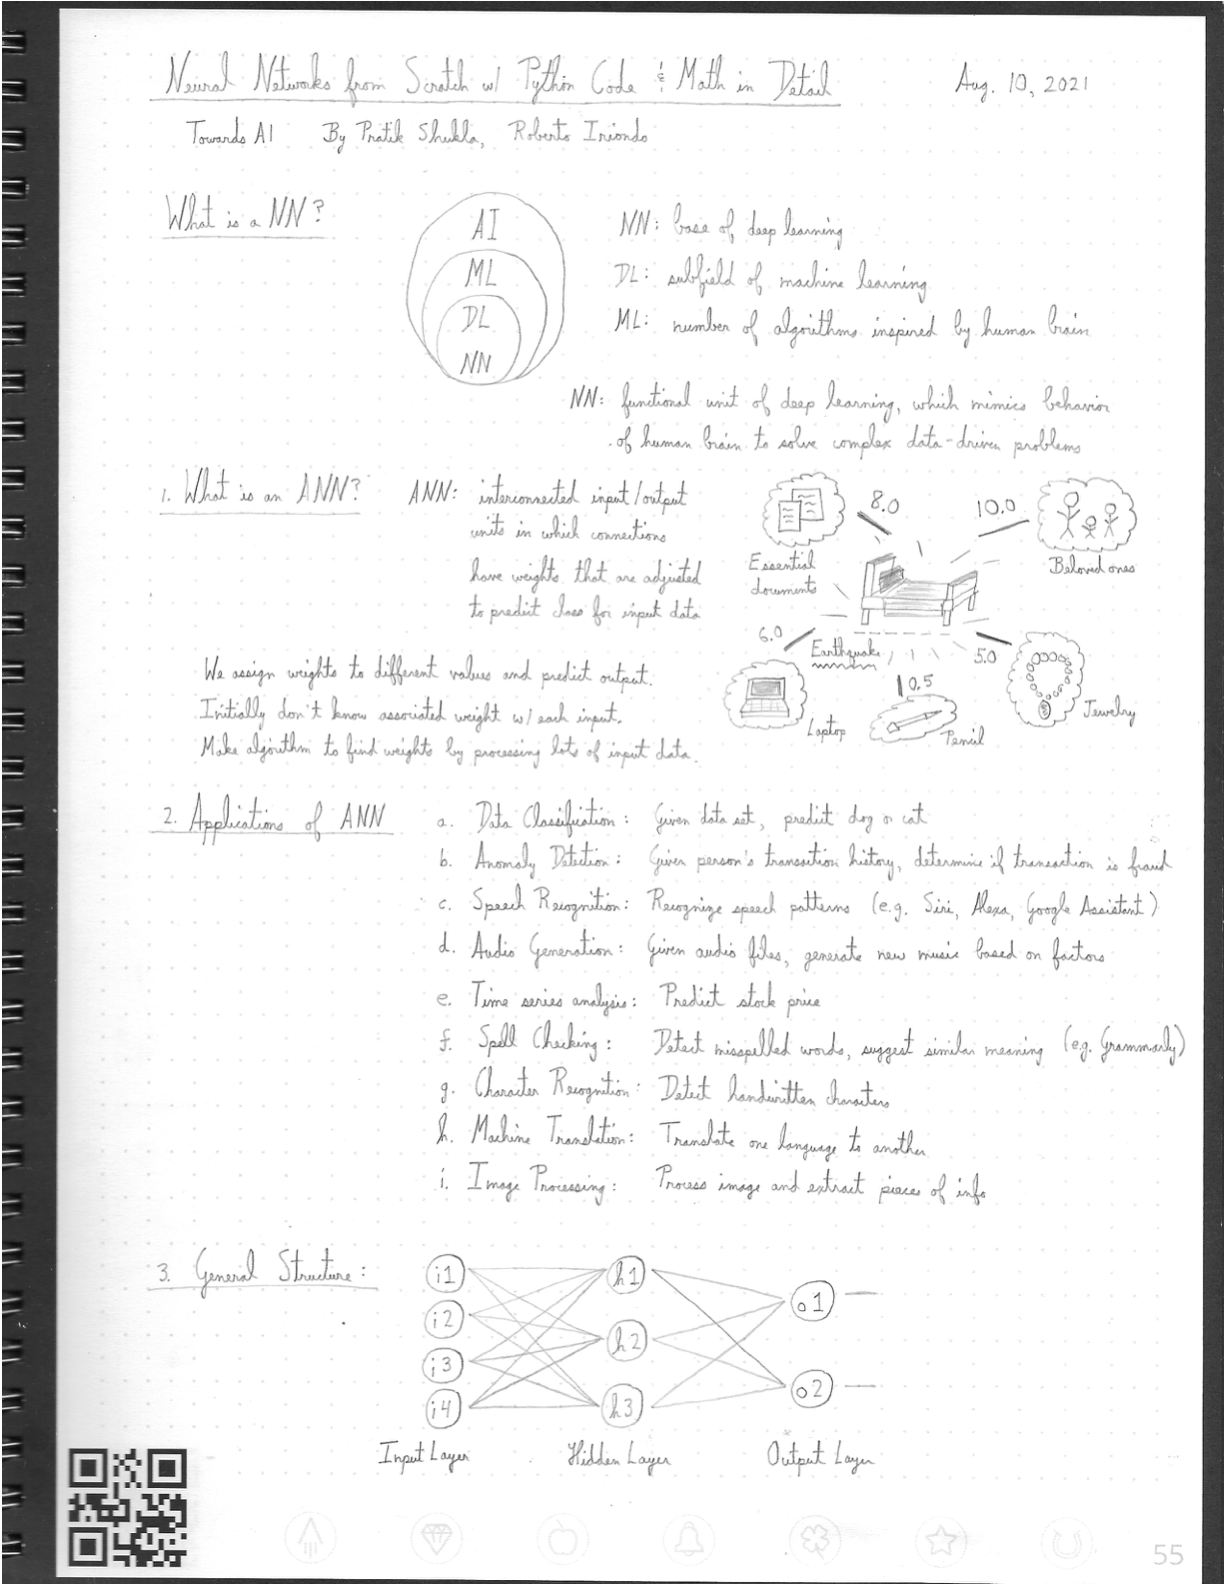 Neural Networks from Scratch w/ Python Code & Math in Detail
Aug. 10, 2021
Towards AI By Pratik Shukla, Roberto Iriondo
What is a NN?
AI
ML
DL
NN
NN: base of deep learning
DL: subfield of machine learning
ML: number of algorithms inspired by human brain
NN: functional unit of deep learning, which mimics behavior
of human brain to solve complex data-driven problems
1. What is an ANN?
ANN: interconnected input/output
units in which connections
have weights that are adjusted
to predict class for input data
8.0
10.0
Essential
documents
Beloved ones
6.0
Earthquake
5.0
0.5
Laptop
Pencil
Jewelry
We assign weights to different values and predict output.
Initially don't know associated weight w/ each input.
Make algorithm to find weights by processing lots of input data.
2. Applications of ANN
a. Data Classification: Given data set, predict dog or cat
b. Anomaly Detection: Given person's transaction history, determine if transaction is fraud
c. Speech Recognition: Recognize speech patterns (e.g. Siri, Alexa, Google Assistant)
d. Audio Generation: Given audio files, generate new music based on factors
e. Time series analysis: Predict stock price
f. Spell Checking: Detect misspelled words, suggest similar meaning (e.g. Grammarly)
g. Character Recognition: Detect handwritten characters
h. Machine Translation: Translate one language to another
i. Image Processing: Process image and extract pieces of info
3. General Structure:
i1
i2
i3
i4
h1
h2
h3
o1
o2
Input Layer
Hidden Layer
Output Layer
55